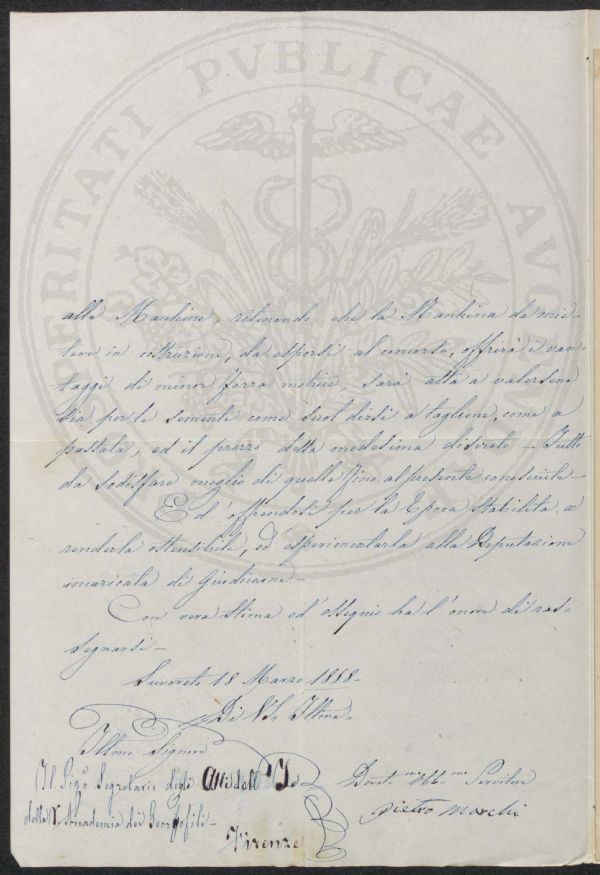 PROSPERITATI PVBLICAE AVGENDAE
alla Machine, ritenendo che la Machina da mie-
tere in costruzione, da esporsi al concorso, offrirà i van-
taggi di minor forza motrice, sarà atta a valersene
sia per le semente come suol dirsi a taglione, come a
passata, ed il prezzo della medesima discreto – Tutto
da sodisfare meglio di quelle fino al presente conosciute –
Ed offrendosi per la Epoca stabilita a
renderla ostensibile, ed esperimentarla alla Deputazione
incaricata di Giudicarne –
Con vera stima ed ossequio ha l'onore di ras-
segnarsi –
Suvereto 18 Marzo 1858 –
Di V. S. Illma
Illmo Signore
Il Sigr Segretario degli Atti dell
della Accademia dei Georgofili –
Firenze
Servitore
Pietro Marchi